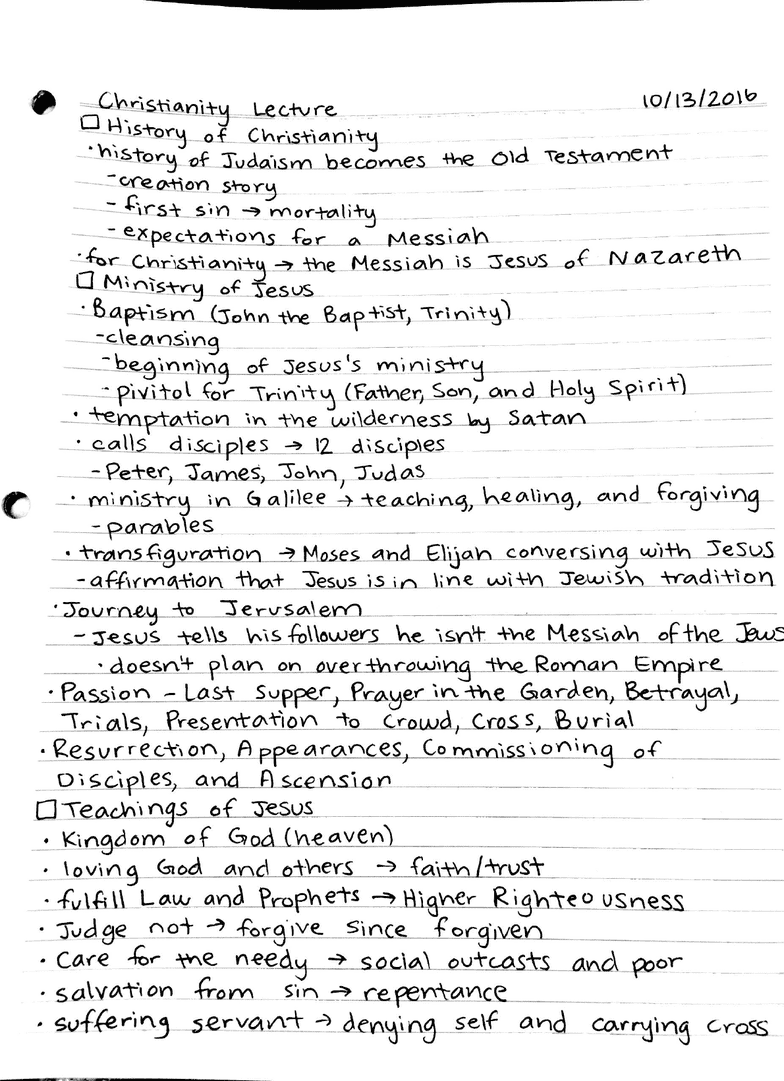 Christianity Lecture 10/13/2016
□ History of Christianity
· history of Judaism becomes the Old Testament
- creation story
- first sin → mortality
- expectations for a Messiah
· for Christianity → the Messiah is Jesus of Nazareth
□ Ministry of Jesus
· Baptism (John the Baptist, Trinity)
- cleansing
- beginning of Jesus's ministry
- pivitol for Trinity (Father, Son, and Holy Spirit)
· temptation in the wilderness by Satan
· calls disciples → 12 disciples
- Peter, James, John, Judas
· ministry in Galilee → teaching, healing, and forgiving
- parables
· transfiguration → Moses and Elijah conversing with Jesus
- affirmation that Jesus is in line with Jewish tradition
· Journey to Jerusalem
- Jesus tells his followers he isn't the Messiah of the Jews
· doesn't plan on overthrowing the Roman Empire
· Passion - Last Supper, Prayer in the Garden, Betrayal,
Trials, Presentation to Crowd, Cross, Burial
· Resurrection, Appearances, Commissioning of
Disciples, and Ascension
□ Teachings of Jesus
· Kingdom of God (heaven)
· loving God and others → faith/trust
· fulfill Law and Prophets → Higher Righteousness
· Judge not → forgive since forgiven
· Care for the needy → social outcasts and poor
· salvation from sin → repentance
· suffering servant → denying self and carrying cross